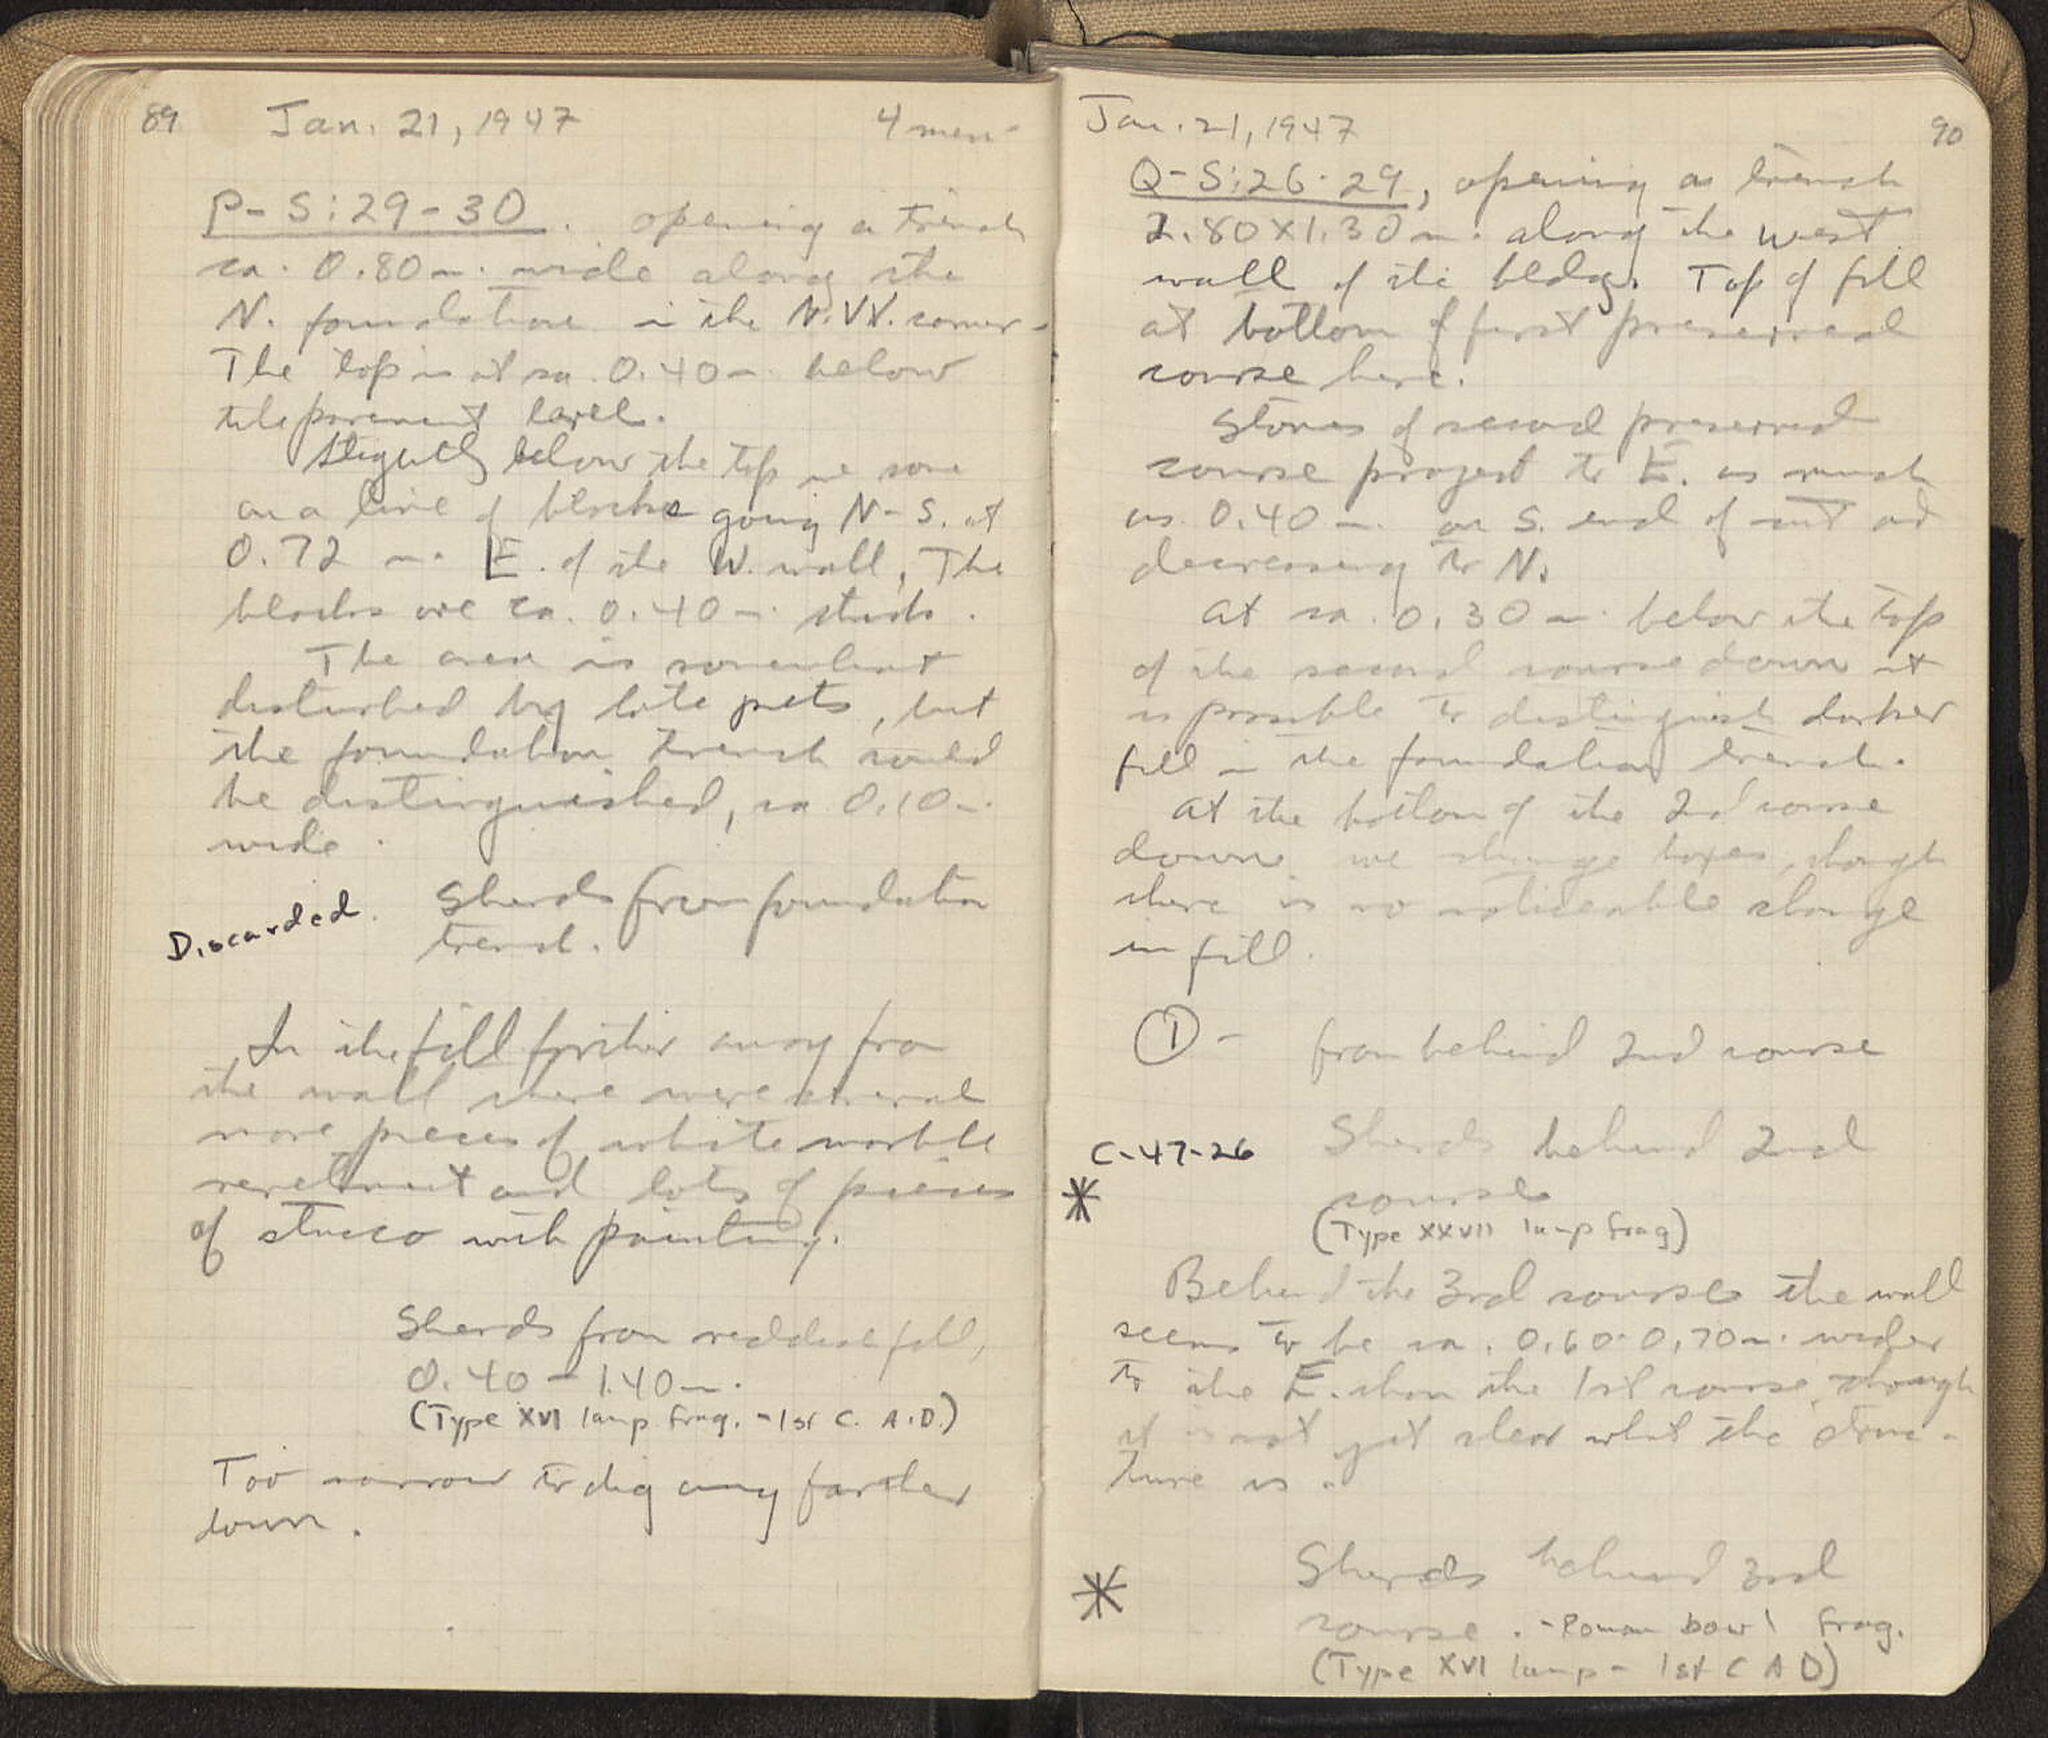 89 Jan. 21, 1947 4 men
P-S:29-30. opening a trench
ca. 0.80m. wide along the
N. foundation in the N.W. corner.
The top is at ca. 0.40m. below
tile pavement level.
Slightly below the top we came
on a line of blocks going N-S. at
0.72 m. E. of the W. wall, The
blocks are ca. 0.40m. thick.
The area is somewhat
disturbed by late pits, but
the foundation trench could
be distinguished, ca 0.10m.
wide.
Discarded. Sherds from foundation
trench.
In the fill further away from
the wall there were several
more pieces of white marble
revetment and lots of pieces
of stucco with painting.
Sherds from reddish fill,
0.40 - 1.40m.
(Type XVI lamp frag. - 1st C. A.D.)
Too narrow to dig any farther
down.
Jan. 21, 1947 90
Q-S:26-29, opening a trench
2.80x1.30m. along the west
wall of the bldg. Top of fill
at bottom of first preserved
course here.
Stones of second preserved
course project to E. as much
as 0.40m. on S. end of cut and
decreasing to N.
At ca. 0.30m. below the top
of the second course down it
is possible to distinguish darker
fill in the foundation trench.
At the bottom of the 2nd course
down we change boxes, though
there is no noticeable change
in fill.
① - from behind 2nd course
C-47-26 Sherds behind 2nd
* course
(Type XXVII lamp frag)
Behind the 3rd course the wall
seems to be ca. 0.60-0.70m. wider
to the E. than the 1st course, though
it is not yet clear what the struc-
ture is.
Sherds behind 3rd
* course. - Roman bowl frag.
(Type XVI lamp - 1st C A D)